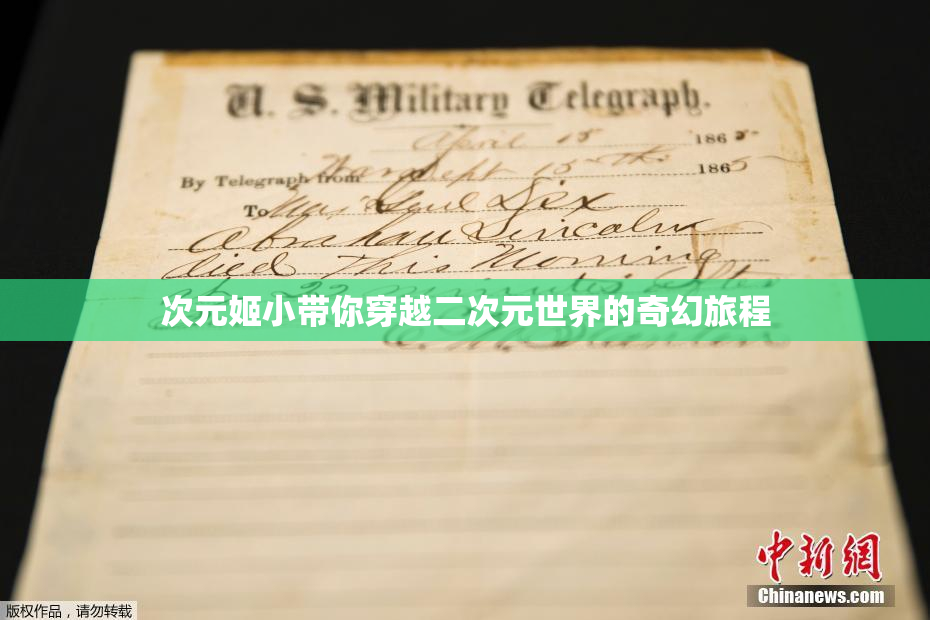 U. S. Military Telegraph.
April 15 1865
By Telegraph from War Dept 15th 1865
To Maj Genl Dix
Abraham Lincoln
died This Morning
at 22 minutes after
次元姬小带你穿越二次元世界的奇幻旅程
E. M. Stanton
中新网
Chinanews.com
版权作品，请勿转载